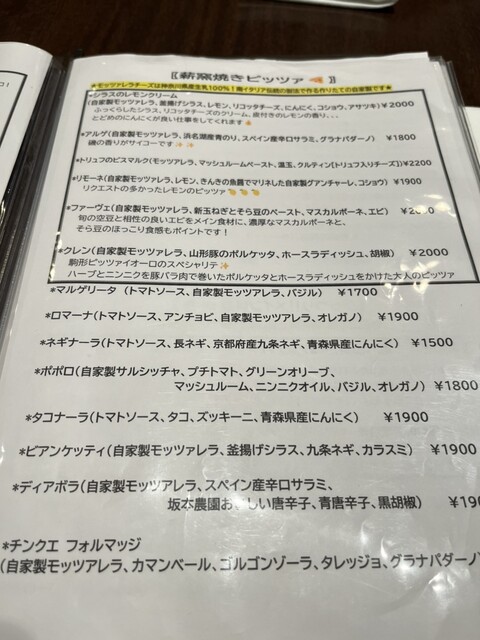 〖薪窯焼きピッツァ🍕〗
★モッツァレラチーズは神奈川県産生乳100%！南イタリア伝統の製法で作る作りたての自家製です★
*シラスのレモンクリーム
(自家製モッツァレラ、釜揚げシラス、レモン、リコッタチーズ、にんにく、コショウ、アサツキ) ￥2000
ふっくらしたシラス、リコッタチーズのクリーム、皮付きのレモンの香り...
とどめのにんにくが良い仕事をしてくれます
*アルゲ(自家製モッツァレラ、浜名湖産青のり、スペイン産辛口サラミ、グラナパダーノ) ￥1800
磯の香りがサイコーです✨
*トリュフのビスマルク(モッツァレラ、マッシュルームペースト、温玉、クルティン[トリュフ入りチーズ])￥2200
*リモーネ(自家製モッツァレラ、レモン、きんきの魚醤でマリネした自家製グアンチャーレ、コショウ) ￥1900
リクエストの多かったレモンのピッツァ🍋🍋🍋
*ファーヴェ(自家製モッツァレラ、新玉ねぎとそら豆のペースト、マスカルポーネ、エビ)
旬の空豆と相性の良いエビをメイン食材に、濃厚なマスカルポーネと、
そら豆のほっこり食感もポイントです！
*クレン(自家製モッツァレラ、山形豚のポルケッタ、ホースラディッシュ、胡椒) ￥2000
駒形ピッツァイオーロのスペシャリテ✨
ハーブとニンニクを豚バラ肉で巻いたポルケッタとホースラディッシュをかけた大人のピッツァ
*マルゲリータ (トマトソース、自家製モッツァレラ、バジル) ￥1700
*ロマーナ(トマトソース、アンチョビ、自家製モッツァレラ、オレガノ) ￥1900
*ネギナーラ(トマトソース、長ネギ、京都府産九条ネギ、青森県産にんにく) ￥1500
*ポポロ(自家製サルシッチャ、プチトマト、グリーンオリーブ、
マッシュルーム、ニンニクオイル、バジル、オレガノ) ￥1800
*タコナーラ(トマトソース、タコ、ズッキーニ、青森県産にんにく) ￥1900
*ビアンケッティ(自家製モッツァレラ、釜揚げシラス、九条ネギ、カラスミ) ￥1900
*ディアボラ(自家製モッツァレラ、スペイン産辛口サラミ、
坂本農園おいしい唐辛子、青唐辛子、黒胡椒) ￥190
*チンクエ フォルマッジ
(自家製モッツァレラ、カマンベール、ゴルゴンゾーラ、タレッジョ、グラナパダーノ)